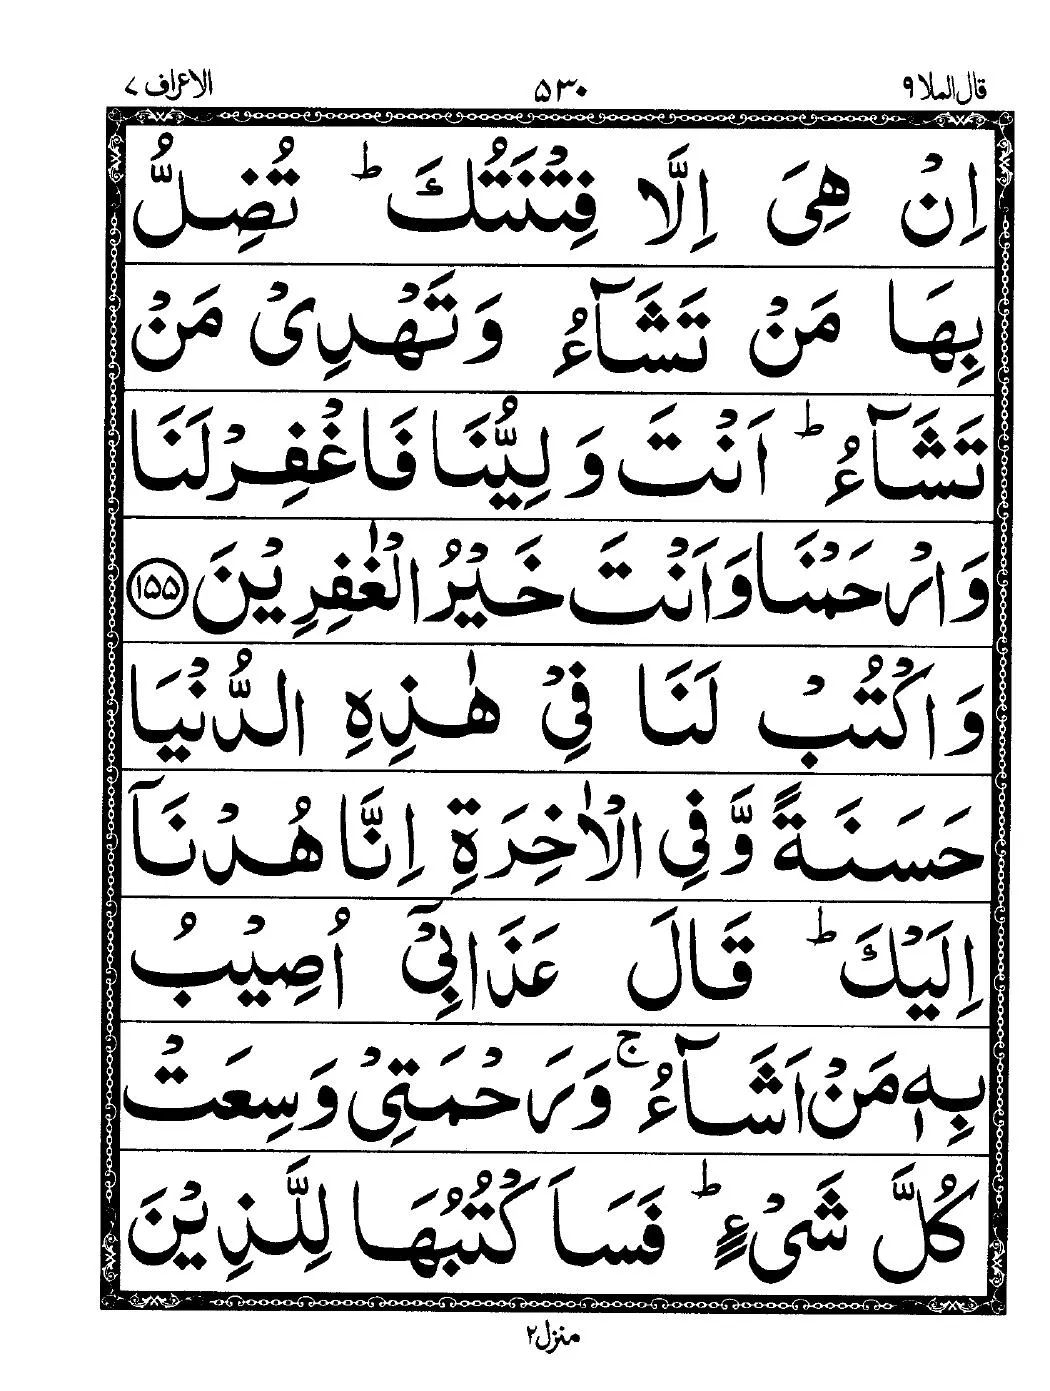 قال الملا ٩ ۵۳۰ الاعراف ٧
اِنْ هِیَ اِلَّا فِتْنَتُكَ ؕ تُضِلُّ
بِهَا مَنْ تَشَآءُ وَتَهْدِیْ مَنْ
تَشَآءُ ؕ اَنْتَ وَلِیُّنَا فَاغْفِرْ لَنَا
وَارْحَمْنَا وَاَنْتَ خَیْرُ الْغٰفِرِیْنَ ﴿۱۵۵﴾
وَاكْتُبْ لَنَا فِیْ هٰذِهِ الدُّنْیَا
حَسَنَةً وَّفِی الْاٰخِرَةِ اِنَّا هُدْنَاۤ
اِلَیْكَ ؕ قَالَ عَذَابِیْۤ اُصِیْبُ
بِهٖ مَنْ اَشَآءُ ۚ وَرَحْمَتِیْ وَسِعَتْ
كُلَّ شَیْءٍ ؕ فَسَاَكْتُبُهَا لِلَّذِیْنَ
منزل ٢